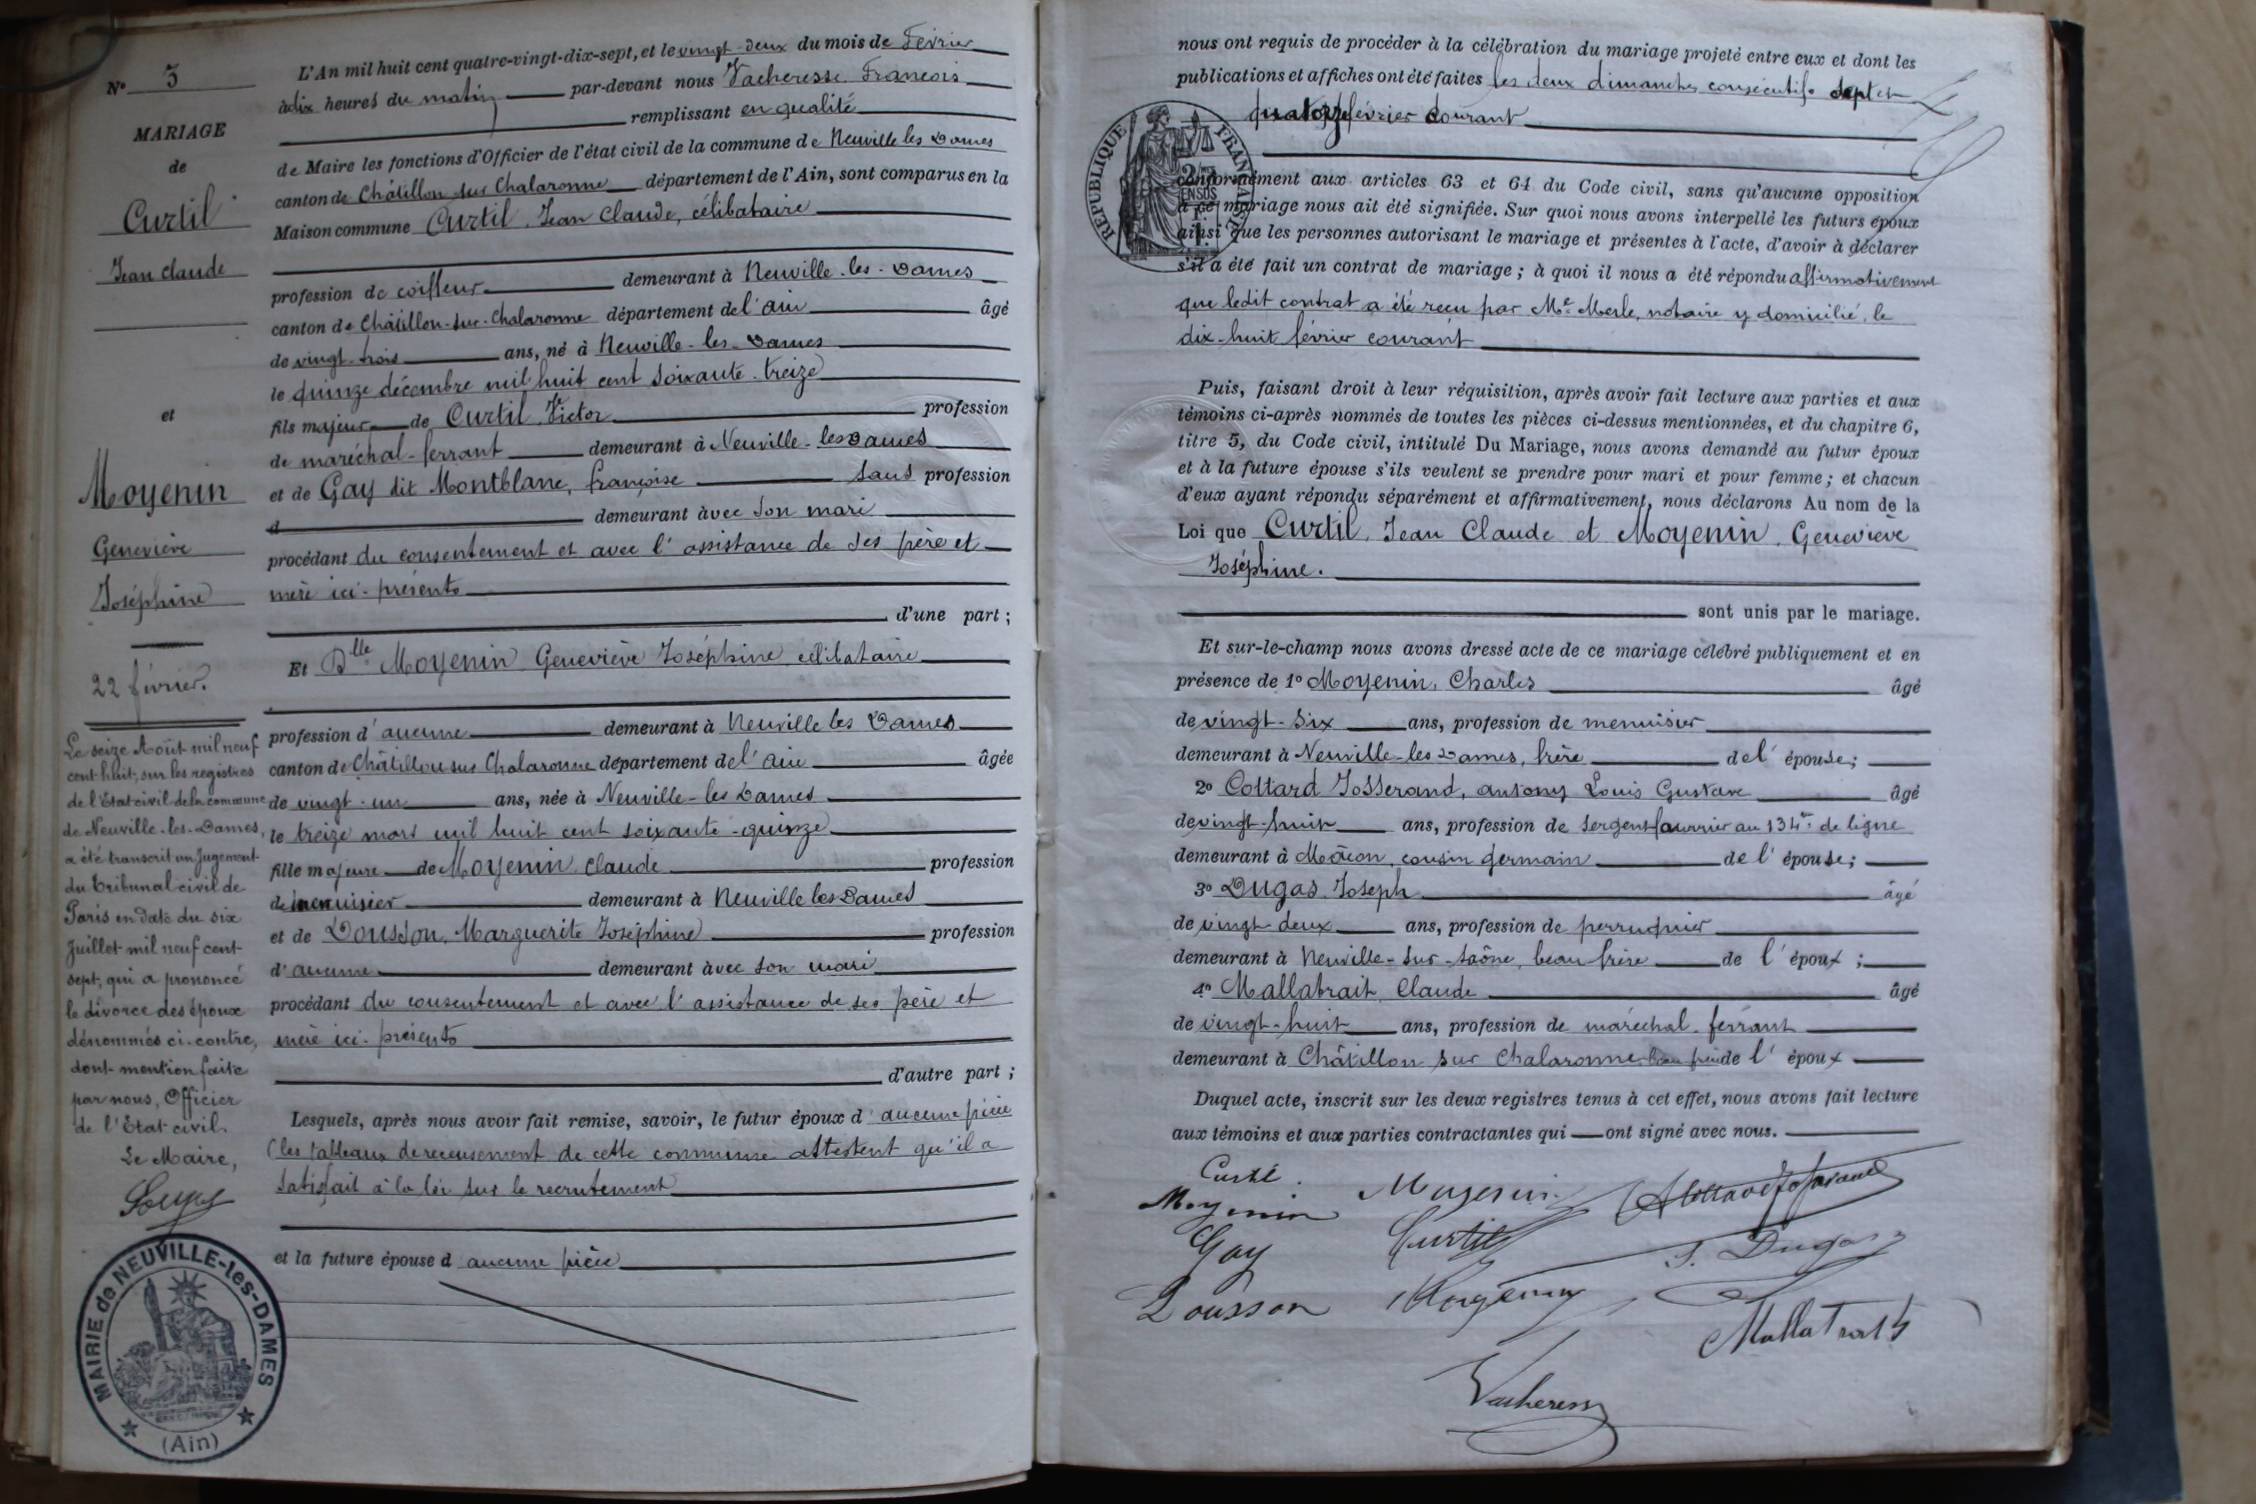 N° 3
MARIAGE
de
Curtil
Jean Claude
et
Moyenin
Geneviève
Joséphine
22 février.
Le seize Août mil neuf
cent huit, sur les registres
de l'Etat civil de la commune
de Neuville-les-Dames,
a été transcrit un Jugement
du Tribunal civil de
Paris en date du six
Juillet mil neuf cent
sept, qui a prononcé
le divorce des époux
dénommés ci-contre,
dont mention faite
par nous, Officier
de l'Etat civil.
Le Maire,
MAIRIE de NEUVILLE-les-DAMES
(Ain)
L'An mil huit cent quatre-vingt-dix-sept, et le vingt-deux du mois de Février
à dix heures du matin par-devant nous Vacheresse François
remplissant en qualité
de Maire les fonctions d'Officier de l'état civil de la commune de Neuville les Dames
canton de Châtillon sur Chalaronne département de l'Ain, sont comparus en la
Maison commune Curtil, Jean Claude, célibataire
profession de coiffeur demeurant à Neuville-les-Dames
canton de Châtillon-sur-Chalaronne département de l'ain âgé
de vingt-trois ans, né à Neuville-les-Dames
le quinze décembre mil huit cent soixante-treize
fils majeur de Curtil Victor profession
de maréchal-ferrant demeurant à Neuville-les Dames
et de Gay dit Montblanc, françoise sans profession
d demeurant avec son mari
procédant du consentement et avec l'assistance de ses père et
mère ici-présents
d'une part ;
Et Dlle Moyenin Geneviève Joséphine célibataire
profession d'aucune demeurant à Neuville les Dames
canton de Châtillon sur Chalaronne département de l'ain âgée
de vingt-un ans, née à Neuville-les Dames
le treize mars mil huit cent soixante-quinze
fille majeure de Moyenin Claude profession
de menuisier demeurant à Neuville les Dames
et de Dousson, Marguerite Joséphine profession
d'aucune demeurant avec son mari
procédant du consentement et avec l'assistance de ses père et
mère ici-présents
d'autre part ;
Lesquels, après nous avoir fait remise, savoir, le futur époux d'aucune pièce
(les tableaux de recensement de cette commune attestent qu'il a
satisfait à la loi sur le recrutement
et la future épouse d aucune pièce
nous ont requis de procéder à la célébration du mariage projeté entre eux et dont les
publications et affiches ont été faites les deux dimanches consécutifs sept et
quatorze février courant
RÉPUBLIQUE FRANÇAISE
conformément aux articles 63 et 64 du Code civil, sans qu'aucune opposition
à ce mariage nous ait été signifiée. Sur quoi nous avons interpellé les futurs époux
ainsi que les personnes autorisant le mariage et présentes à l'acte, d'avoir à déclarer
s'il a été fait un contrat de mariage ; à quoi il nous a été répondu affirmativement
que ledit contrat a été reçu par Me Merle, notaire y domicilié, le
dix-huit février courant
Puis, faisant droit à leur réquisition, après avoir fait lecture aux parties et aux
témoins ci-après nommés de toutes les pièces ci-dessus mentionnées, et du chapitre 6,
titre 5, du Code civil, intitulé Du Mariage, nous avons demandé au futur époux
et à la future épouse s'ils veulent se prendre pour mari et pour femme ; et chacun
d'eux ayant répondu séparément et affirmativement, nous déclarons Au nom de la
Loi que Curtil, Jean Claude et Moyenin, Geneviève
Joséphine.
sont unis par le mariage.
Et sur-le-champ nous avons dressé acte de ce mariage célébré publiquement et en
présence de 1° Moyenin, Charles âgé
de vingt-six ans, profession de menuisier
demeurant à Neuville-les Dames, frère de l'épouse ;
2° Cottard Josserand, antony Louis Gustave âgé
de vingt-huit ans, profession de sergent fourrier au 134e de ligne
demeurant à Mâcon, cousin germain de l'épouse ;
3° Dugas Joseph âgé
de vingt-deux ans, profession de perruquier
demeurant à Neuville-sur-Saône, beau frère de l'époux ;
4° Mallatrait Claude âgé
de vingt-huit ans, profession de maréchal-ferrant
demeurant à Châtillon sur Chalaronne beau frère de l'époux
Duquel acte, inscrit sur les deux registres tenus à cet effet, nous avons fait lecture
aux témoins et aux parties contractantes qui ont signé avec nous.
Curtil. Moyenin
Moyenin Curtil
Gay J. Dugas
Dousson Moyenin
Mallatrait
Vacheresse